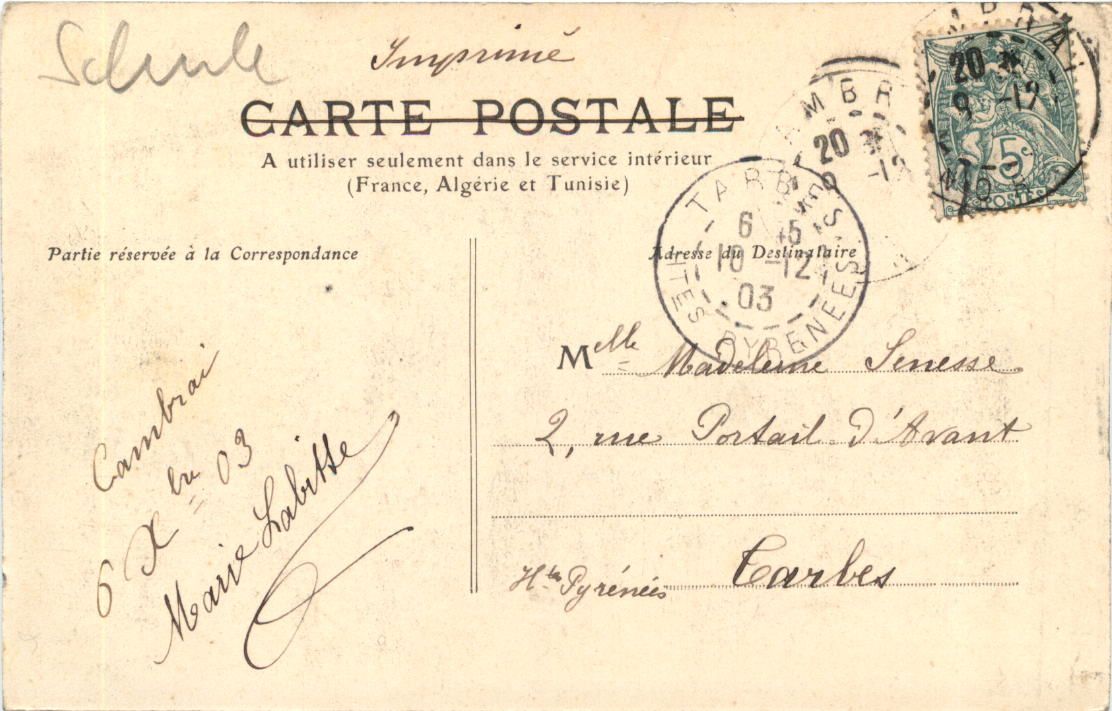 Imprimé
CARTE POSTALE
A utiliser seulement dans le service intérieur
(France, Algérie et Tunisie)
AMBRAI
20 *
9 -12
NORD
5
POSTES
AMBR
20 *
9 -12
TARBES
6 45
10 -12
03
HTES PYRENEES
Partie réservée à la Correspondance
Cambrai
6 Xbre 03
Marie Labitte
Adresse du Destinataire
Melle Madeleine Senesse
2, rue Portail d'Avant
Htes Pyrénées Tarbes